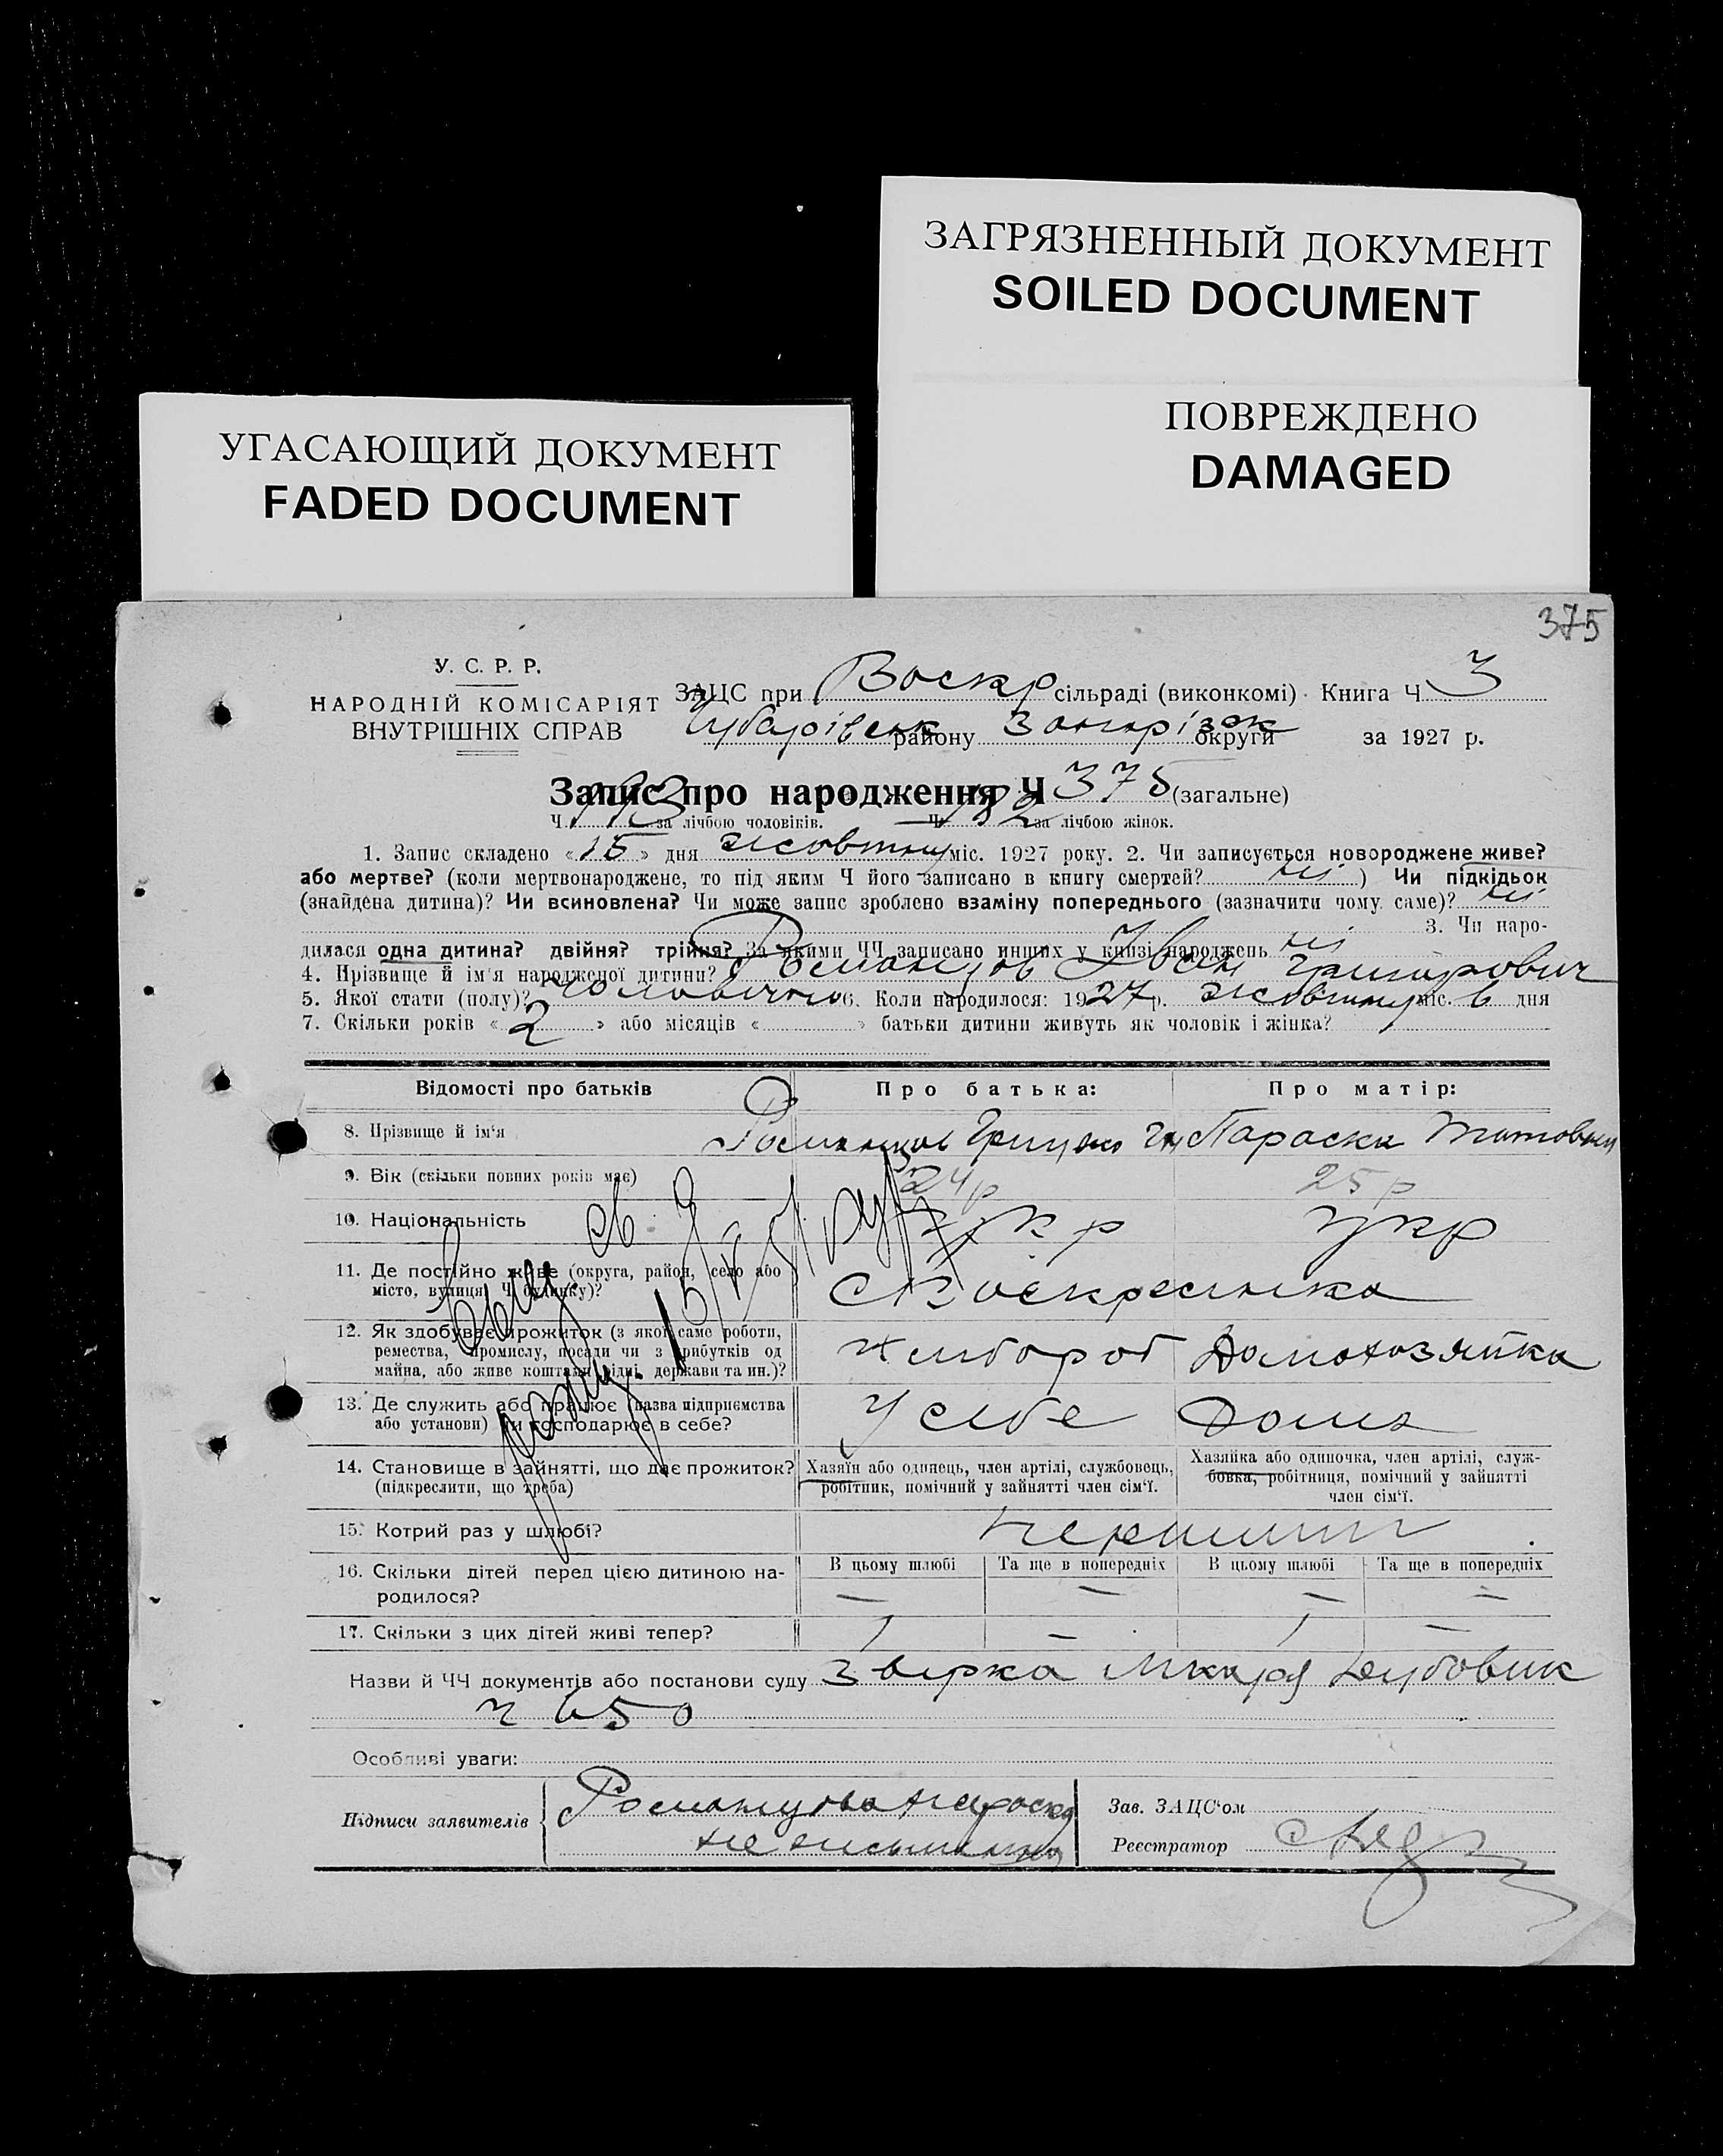 ЗАГРЯЗНЕННЫЙ ДОКУМЕНТ
SOILED DOCUMENT
ПОВРЕЖДЕНО
DAMAGED
УГАСАЮЩИЙ ДОКУМЕНТ
FADED DOCUMENT
375
У. С. Р. Р.
НАРОДНІЙ КОМІСАРІЯТ
ВНУТРІШНІХ СПРАВ
ЗАЦС при Воскр сільраді (виконкомі) Книга Ч. 3
Чубарівськ району Запорізьк округи за 1927 р.
Запис про народження Ч 375 (загальне)
Ч. 193 за лічбою чоловіків. Ч. 182 за лічбою жінок.
1. Запис складено «15» дня жовтня міс. 1927 року. 2. Чи записується новороджене живе?
або мертве? (коли мертвонароджене, то під яким Ч його записано в книгу смертей? ні) Чи підкідьок
(знайдена дитина)? Чи всиновлена? Чи може запис зроблено взаміну попереднього (зазначити чому саме)? ні
3. Чи наро-
дилася одна дитина? двійня? трійня? За якими ЧЧ записано инших у книзі народжень ні
4. Прізвище й ім'я народженої дитини? Іван Григорович
5. Якої стати (полу)? чоловічної 6. Коли народилося: 1927 р. жовтня міс. 6 дня
7. Скільки років «2» або місяців « » батьки дитини живуть як чоловік і жінка?
Відомості про батьків
Про батька:
Про матір:
8. Прізвище й ім'я Грицько Параска Титовна
9. Вік (скільки повних років має) 24 р 25 р
10. Національність укр укр
11. Де постійно живе (округа, район, село або
місто, вулиця, Ч будинку)? с Воскресенка
12. Як здобуває прожиток (з якої саме роботи,
ремества, промислу, посади чи з прибутків од
майна, або живе коштами рідні, держави та ин.)? Хлібороб Домохозяйка
13. Де служить або працює (назва підприємства
або установи) чи господарює в себе? У себе Дома
14. Становище в зайнятті, що дає прожиток?
(підкреслити, що треба)
Хазяїн або одинець, член артілі, службовець,
робітник, помічний у зайнятті член сім'ї.
Хазяйка або одиночка, член артілі, служ-
бовка, робітниця, помічний у зайнятті
член сім'ї.
15. Котрий раз у шлюбі?
16. Скільки дітей перед цією дитиною на-
родилося?
В цьому шлюбі Та ще в попередніх В цьому шлюбі Та ще в попередніх
— — — —
17. Скільки з цих дітей живі тепер? 1 — 1 —
Назви й ЧЧ документів або постанови суду
650
Особливі уваги:
Підписи заявителів
Параска
не письменна
Зав. ЗАЦС'ом
Реєстратор